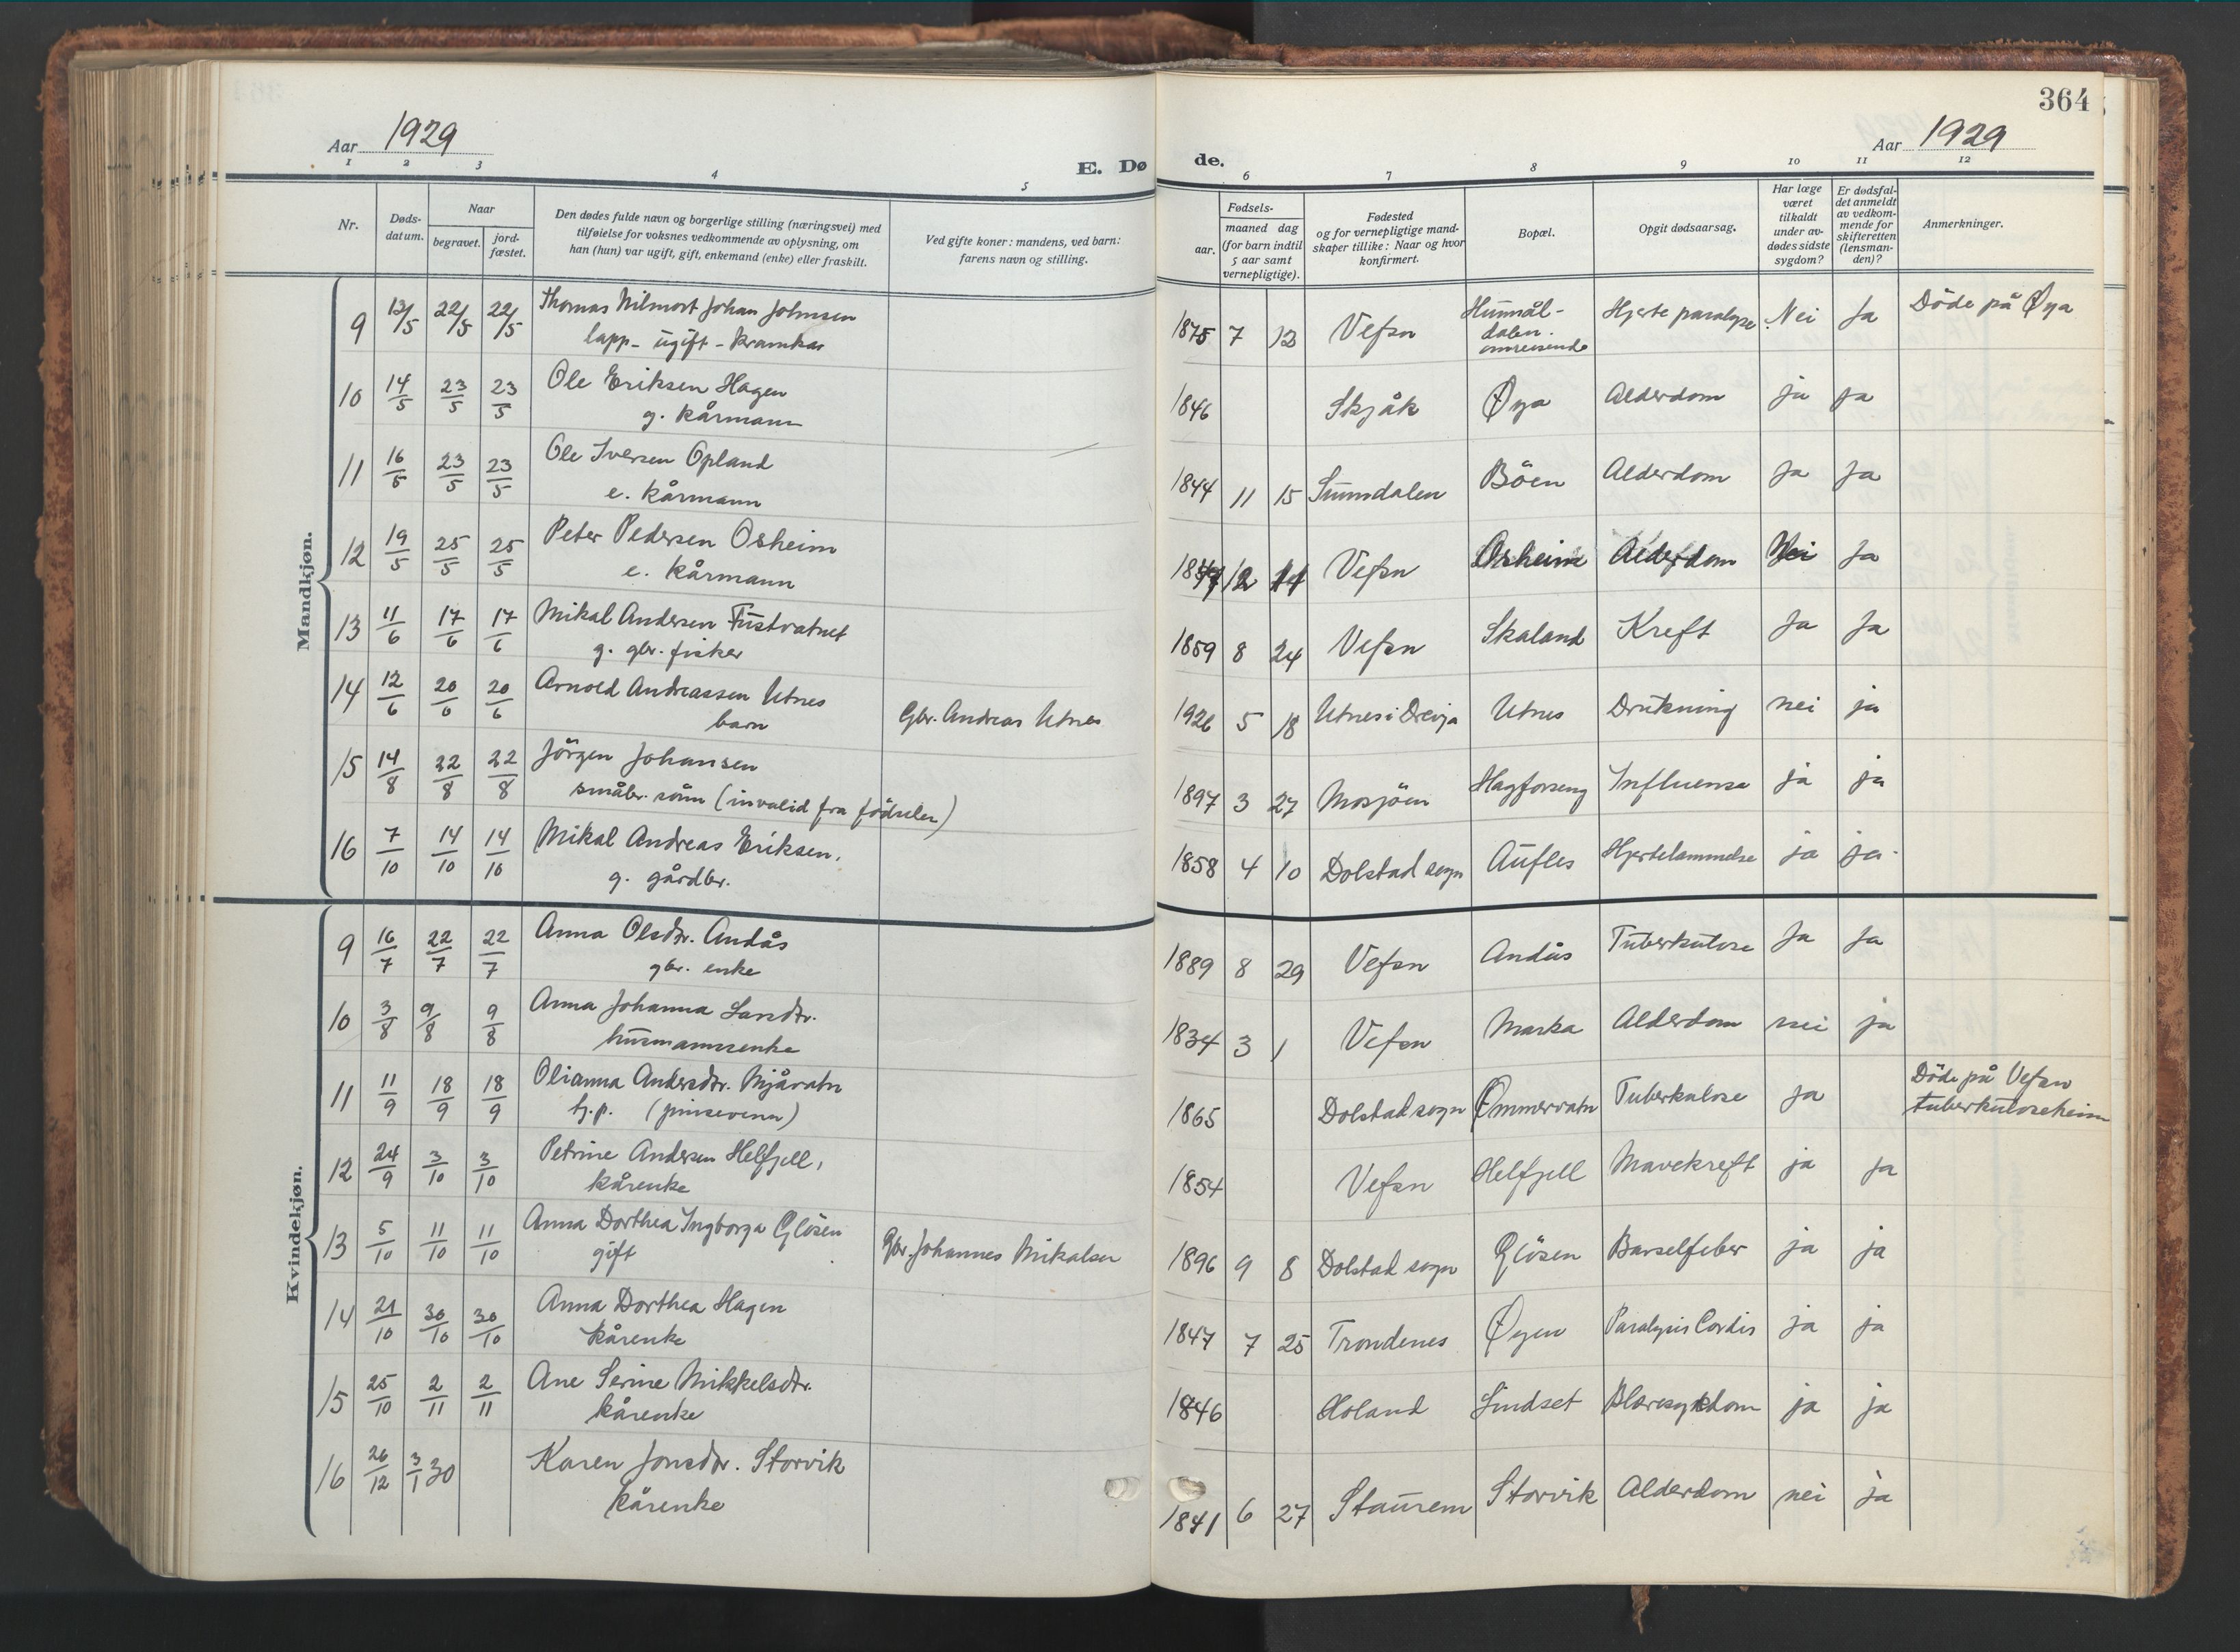 364
Aar 1929
E. Dø
de.
Aar 1929
1 2 3 4 5
6 7 8 9 10 11 12
Nr.
Døds-
datum.
Naar
begravet.
jord-
fæstet.
Den dødes fulde navn og borgerlige stilling (næringsvei) med
tilføielse for voksnes vedkommende av oplysning, om
han (hun) var ugift, gift, enkemand (enke) eller fraskilt.
Ved gifte koner: mandens, ved barn:
farens navn og stilling.
Fødsels-
aar.
maaned dag
(for barn indtil
5 aar samt
vernepligtige).
Fødested
og for vernepligtige mand-
skaper tillike: Naar og hvor
konfirmert.
Bopæl.
Opgit dødsaarsag.
Har læge
været
tilkaldt
under av-
dødes sidste
sygdom?
Er dødsfal-
det anmeldt
av vedkom-
mende for
skifteretten
(lensman-
den)?
Anmerkninger.
Mandkjøn.
9 13/5 22/5 22/5 Thomas Nilmort Johan Johnsen
lapp - ugift - kramkar
1875 7 13 Vefsn Hunnål-
dalen.
omreisende
Hjerteparalyse Nei Ja Döde på Øya
10 14/5 23/5 23/5 Ole Eriksen Hagen
g. kårmann
1846 Skjåk Øya Alderdom ja ja
11 16/5 23/5 23/5 Ole Iversen Opland
e. kårmann
1844 11 15 Sunndalen Böen Alderdom Ja Ja
12 19/5 25/5 25/5 Peter Pedersen Osheim
e. kårmann
12 Vefsn Osheim Alderdom Nei Ja
13 11/6 17/6 17/6 Mikal Andersen Fustvatnet
g. gbr. fisker
1859 8 24 Vefsn Skaland Kreft Ja Ja
14 12/6 20/6 20/6 Arnold Andreassen Utnes
barn
Gbr. Andreas Utnes
1926 5 18 Utnes i Drevja Utnes Drukning nei ja
15 14/8 22/8 22/8 Jörgen Johansen
småbr. sönn (invalid fra födselen)
1897 3 27 Mosjöen Hagforseng Influensa ja ja
16 7/10 14/10 14/10 Mikal Andreas Eriksen.
g. gårdbr.
1858 4 10 Dolstad sogn Aufles Hjertelammelse ja ja.
Kvindekjøn.
9 16/7 22/7 22/7 Anna Olsdtr. Andås
gbr. enke
1889 8 29 Vefsn Andås Tuberkulose Ja Ja
10 3/8 9/8 9/8 Anna Johanna Larsdtr.
husmannsenke
1834 3 1 Vefsn Marka Alderdom nei ja
11 11/9 18/9 18/9 Olianna Andersdtr. Mjåvatn
tj.p. (pinsevenn)
1865 Dolstad sogn Ømmervatn Tuberkulose ja
Döde på Vefsn
tuberkuloseheim
12 24/9 3/10 3/10 Petrine Andersen Helfjell,
kårenke
1854 Vefsn Helfjell Mavekreft ja ja
13 5/10 11/10 11/10 Anna Dorthea Ingborga Glösen
gift
Gbr. Johannes Mikalsen
1896 9 8 Dolstad sogn Glösen Barselfeber ja ja
14 21/10 30/10 30/10 Anna Dorthea Hagen
kårenke
1847 7 25 Trondenes Øyen Paralysis Cordis ja ja
15 25/10 2/11 2/11 Ane Serine Mikkelsdtr.
kårenke
1846 Holand Lindset Blæresykdom ja ja
16 26/12 3/1 30 Karen Jonsdtr. Storvik
kårenke
1841 6 27 Staurem Storvik Alderdom nei ja